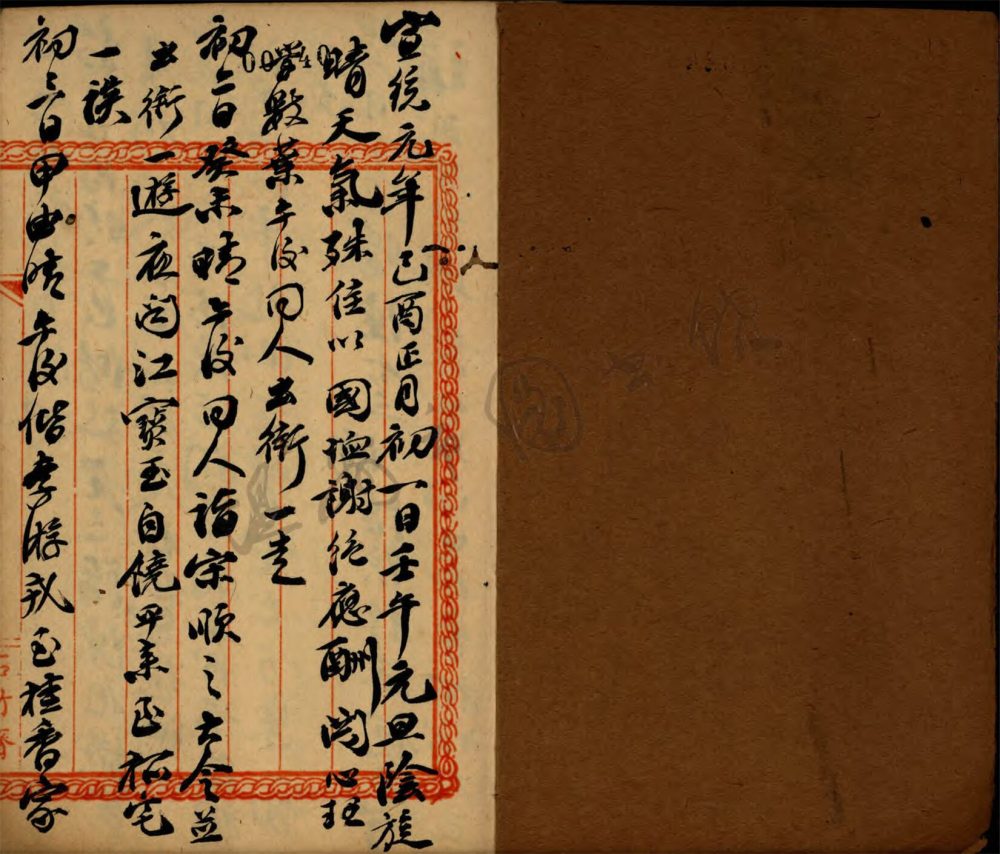 宣統元年己酉正月初一日壬午元旦陰旋
晴天氣殊佳以國恤謝絕應酬閱心理
學數葉午後同人出街一走
初二日癸未晴午後同人詣宗順之大令並
出街一遊夜閱江寶玉自饒平來函松宅
一誤
初三日甲申晴午後偕李游戎至桂香家